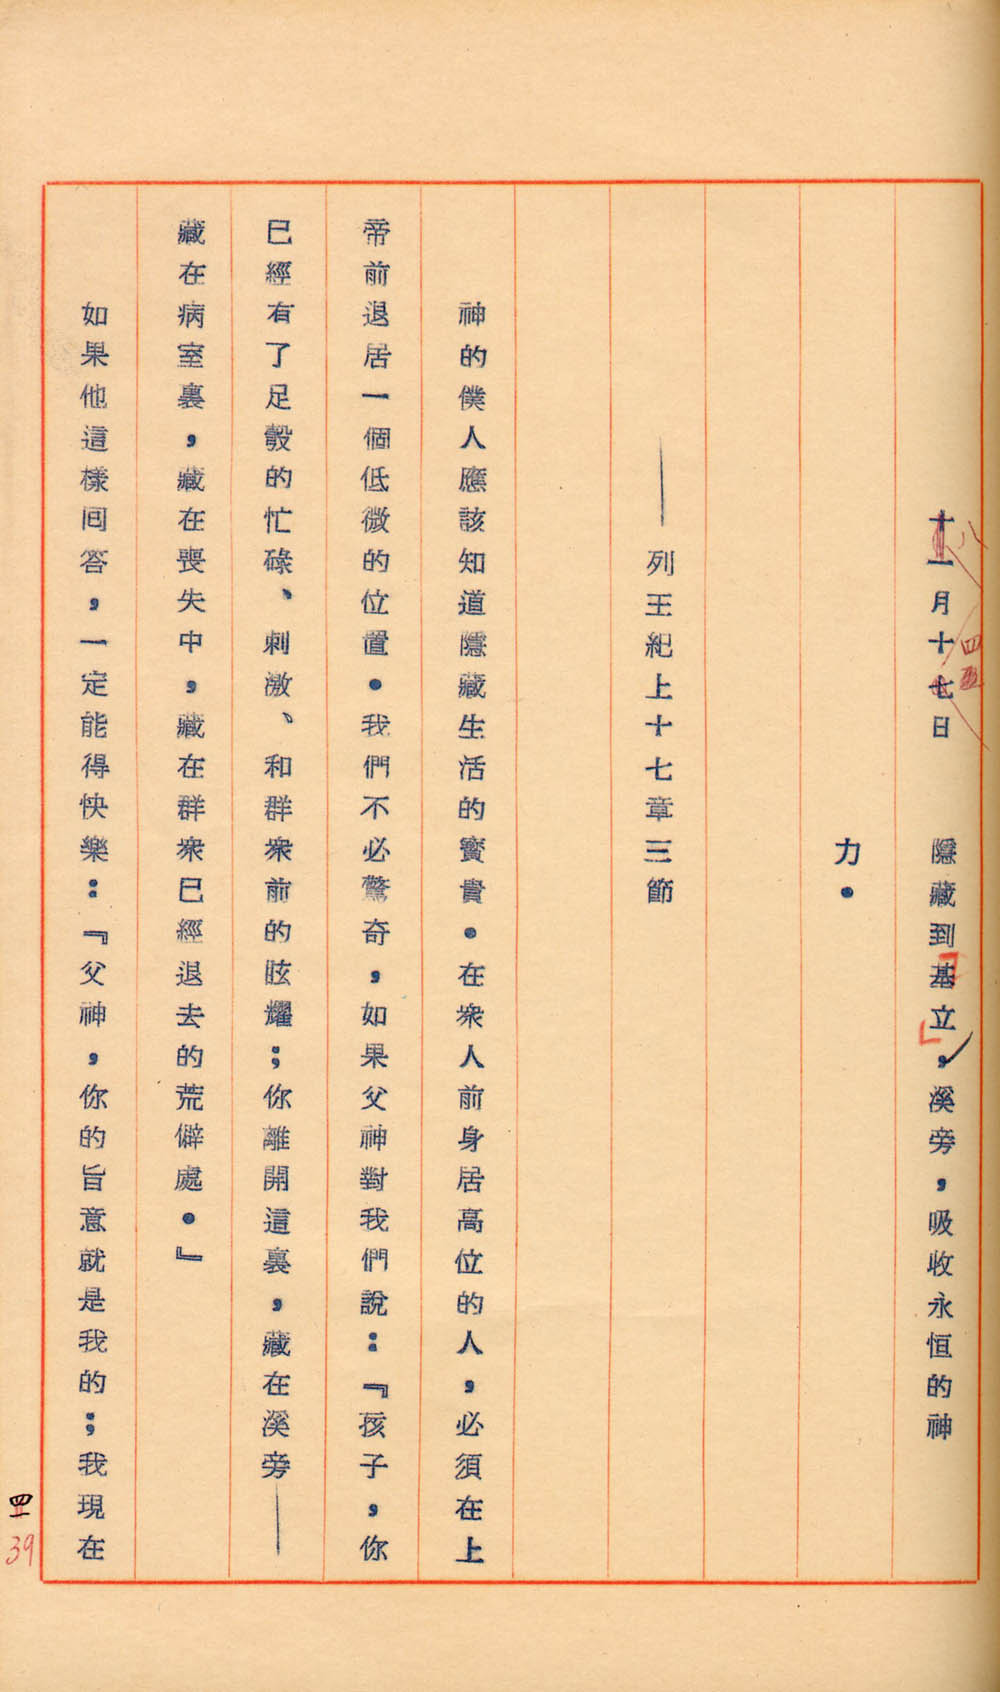 十一月十七日　隱藏到基立，溪旁，吸收永恒的神
力．
——列王紀上十七章三節
神的僕人應該知道隱藏生活的寶貴．在衆人前身居高位的人，必須在上
帝前退居一個低微的位置．我們不必驚奇，如果父神對我們說：『孩子，你
已經有了足彀的忙碌、刺激、和群衆前的眩耀；你離開這裏，藏在溪旁——
藏在病室裏，藏在喪失中，藏在群衆已經退去的荒僻處．』
如果他這樣囘答，一定能得快樂：『父神，你的旨意就是我的；我現在
八
四
39